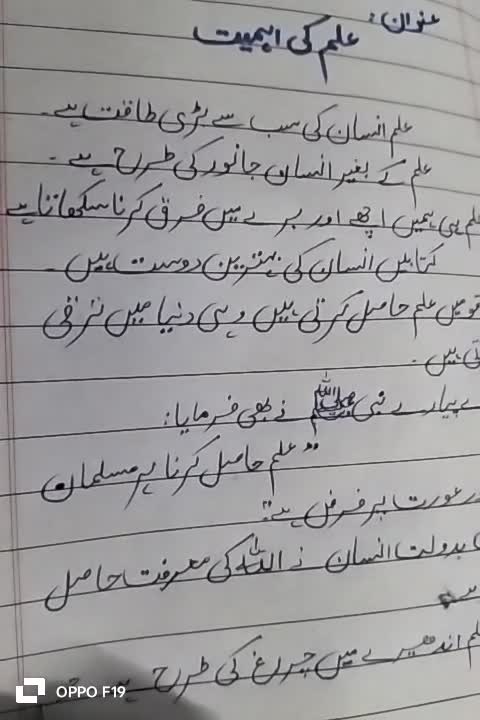 عنوان:
علم کی اہمیت
علم انسان کی سب سے بڑی طاقت ہے۔
علم کے بغیر انسان جانور کی طرح ہے۔
علم ہی ہمیں اچھے اور برے میں فرق کرنا سکھاتا ہے
کتابیں انسان کی بہترین دوست ہیں۔
قومیں علم حاصل کرتی ہیں وہی دنیا میں ترقی
ہیں۔
پیارے نبی ﷺ نے بھی فرمایا:
"علم حاصل کرنا ہر مسلمان
عورت پر فرض ہے"
بدولت انسان نے اللہ کی معرفت حاصل
علم اندھیرے میں چراغ کی طرح ہے
OPPO F19